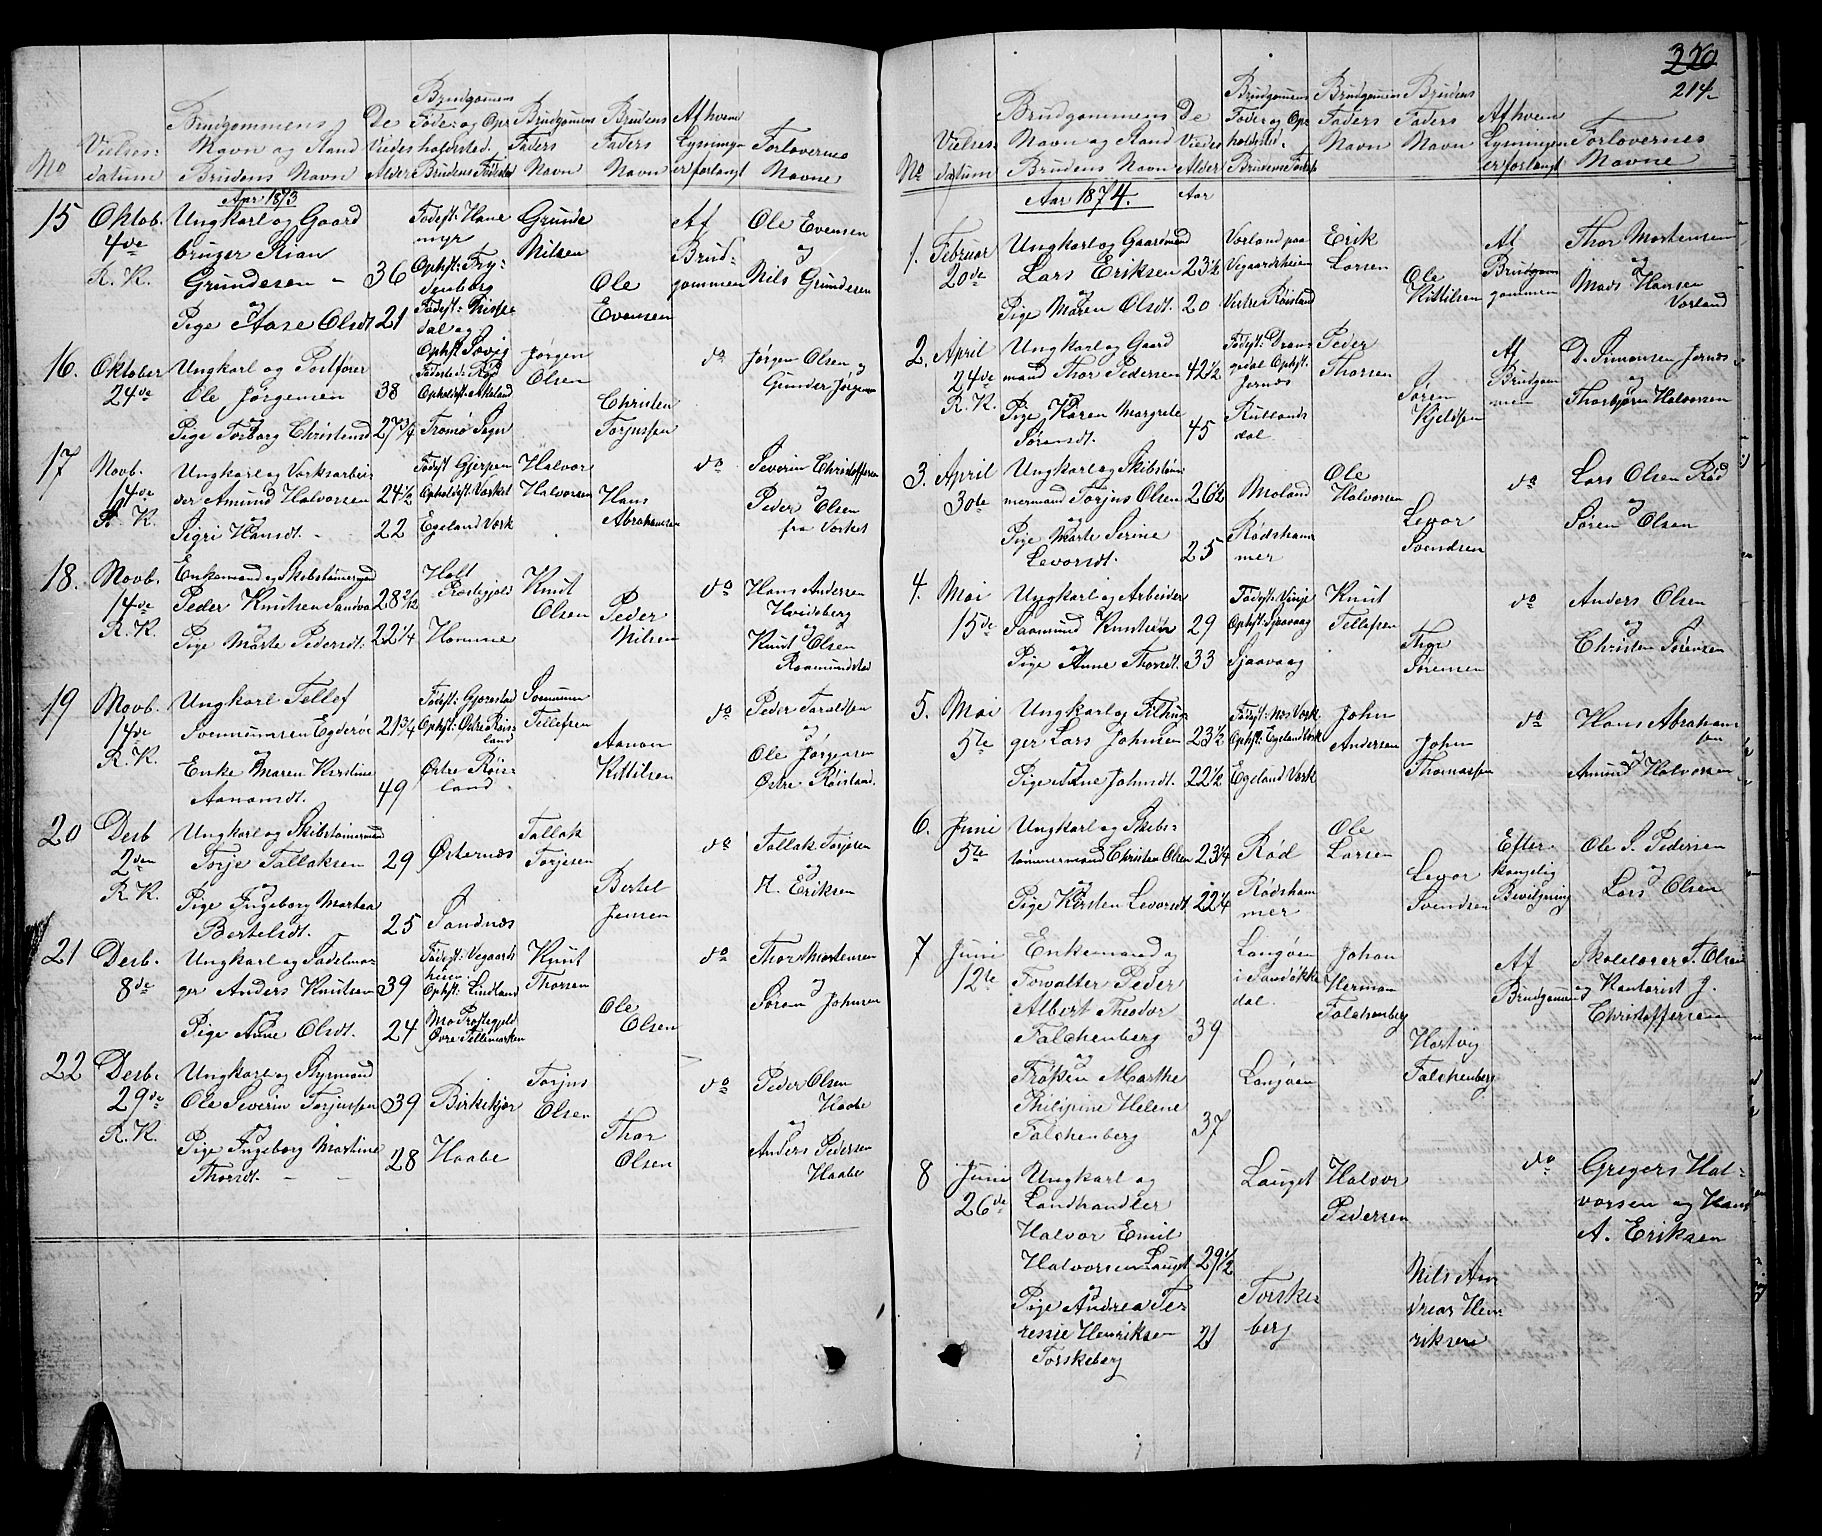 320
214
No
Vielses-
datum
Brudgommens
Navn og Stand
Brudens Navn
De
Viedes
Alder
Brudgomens
Føde- og Op-
holdssted.
Brudens Fødested
Brudgomens
Faders
Navn
Brudens
Faders
Navn
Af hvem
Lysningen
er forlangt
Forlovernes
Navne
Aar 1873
15 Oktob.
4de
R. K.
Ungkarl og Gaard
bruger
Grundesen 36
og
Pige Aase Olsdt 21
Fødest: Hane
myr
Ophst:
Fødest:
dal og
Ophst
Grunde
Nilsen
Ole
Evensen
Af
Brud-
gommen
Ole Evensen
og
Nils Grundesen
16. Oktober
24de
R. K.
Ungkarl og Postfører
Ole Jørgensen 38
og
Pige Torborg 27 3/4
Fødested: Rød
Opholdst: Akeland
Tromø Sogn
Jørgen
Olsen
Christen
Torjussen
do
Jørgen Olsen
og
Gunder Jørgensen
17 Novb.
14de
R. K.
Ungkarl og Verksarbei-
der Amund Halvorsen 24 1/2
og
Sigri Hansdt. 22
Fødst Gjerpen
Opholdst: Verket
Egeland Verk
Halvor
Halvorsen
Hans
Abrahamsen
do
Severin Christoffersen
og
Peder Olsen
fra Verket
18. Novb.
14de
R. K.
Enkemand og Skibstømermand
Peder Knutsen 28
og
Pige Marte Pedersdt. 22 1/4
Holt
Prestegjeld
Homme
Knut
Olsen
Peder
Nilsen
do
Hans Andersen
og
Knut Olsen
19 Novb.
14de
R. K.
Ungkarl Tellef
Svennumsen Egderøe 21 3/4
og
Enke Maren Kirstine
Aanonsdt. 49
Fødest: Gjerestad
Ophst: Østre Røis-
land
Østre Røis-
land.
Svennum
Tellefsen
Aanon
Kittilsen
do
Peder Taraldsen
og
Ole Jørgensen
Østre Røisland.
20 Desb
2den
R. K.
Ungkarl og Skibstømermand
Torje Tallaksen 29
og
Pige Ingeborg Martea
Bertelsdt. 25
Østernæs
Sandnæs
Tallak
Torjesen
Bertel
Jensen
do
Tallak Torjesen
og
H. Eriksen
21 Desb.
8de
Ungkarl og Sadelma-
ger Anders Knutsen 39
og
Pige Anne Olsdt. 24
Fødest: Vegaards
heien
Ophst: Lindland
Mo Prestegjeld
Øvre Tellemarken
Knut
Thorsen
Ole
Olsen
do
Thor Mortensen
og
Søren Johnsen
22 Desb.
29de
R. K.
Ungkarl og Styrmand
Ole Severin Torjussen 39
og
Pige Ingeborg Martine
Thorsdt. 28
Birkekjær
Haabe
Torjus
Olsen
Thor
Olsen
do
Peder Olsen
Haabe
og
Anders Pedersen
Haabe
No
Vielses-
datum
Brudgommens
Navn og Stand
Brudens Navn
De
Viedes
Alder
Brudgomens
Føde og Op-
holdsted.
Brudens Fødest
Brudgomens
Faders
Navn
Brudens
Faders
Navn
Af hvem
Lysningen
er forlangt
Forlovernes
Navne
Aar 1874.
Aar
1. Februar
20de
Ungkarl og Gaardmand
Lars Eriksen 23 1/2
og
Pige Maren Olsdt. 20
Vorland paa
Vegaardsheien
Vestre Røisland
Erik
Larsen
Ole
Kittilsen
Af
Brudgom
gommen
Thor Mortensen
og
Mads Hansen
Vorland
2. April
24de
R. K.
Ungkarl og Gaard
mand Thor Pedersen 42 1/2
og
Pige Karen Margrete
Sørensdt. 45
Fødst: Dran-
gedal Ophst:
Jernæs
Rutlands
dal.
Peder
Thorsen
Søren
Kjeldsen
Af
Brudgom
men
D. Simonsen Jernæs
og
Thorbjørn Halvorsen
3. April
30te
Ungkarl og Skibstøm-
mermand Torjus Olsen 26 1/2
og
Pige Marte Serine
Levorsdt. 25
Moland
Rødsham
mer
Ole
Halvorsen
Levor
Svendsen
do
Lars Olsen Rød
og
Søren Olsen
4. Mai
15de
Ungkarl og Arbeider
Saamund Knutsen 29
og
Pige Anne Thorsdt. 33
Fødst: Vinje
Ophst: Sjaavaag
Sjaavaag
Knut
Tellefsen
Thor
Sørensen
do
Anders Olsen
og
Christen Sørensen
5. Mai
5te
Ungkarl og Filhug-
ger Lars Johnsen 23 1/2
og
Pige Ane Johnsdt. 22 1/2
Fødst: Næs Verk
Ophst: Egeland Verk
Egeland Verk
John
Andersen
John
Thomassen
do
Hans Abraham
sen
og
Amund Halvorsen
6. Juni
5te
Ungkarl og Skibs-
tømmermand Christen Olsen 23 1/4
og
Pige Kirsten Levorsdt. 22 1/4
Rød
Rødsham
mer
Ole
Larsen
Levor
Svendsen
Efter
kongelig
Bevilgning
Ole S. Pedersen
og
Lars Olsen
7 Juni
12te
Enkemand og
Forvalter Peder
Albert Theodor
Falchenberg 39
og
Frøken Marthe
Philipine Helene
Falchenberg 37
Langøen
i Sandøkke
dal.
Langøen
Johan
Herman
Falchenberg
Hartvig
Falchenberg
Af
Brudgomen
Skolelærer T. Olsen
og Kantorist J.
Christoffersen
8 Juni
26de
Ungkarl og
Landhandler
Halvor Emil
Halvorsen Lauget 29 1/2
og
Pige Andrea Te
ressie Henriksen
Torskeberg 21
Lauget
Torske
berg
Halvor
Pedersen
Nils An
dreas Hen
riksen
do
Gregers Hal-
vorsen og Hans
A. Eriksen